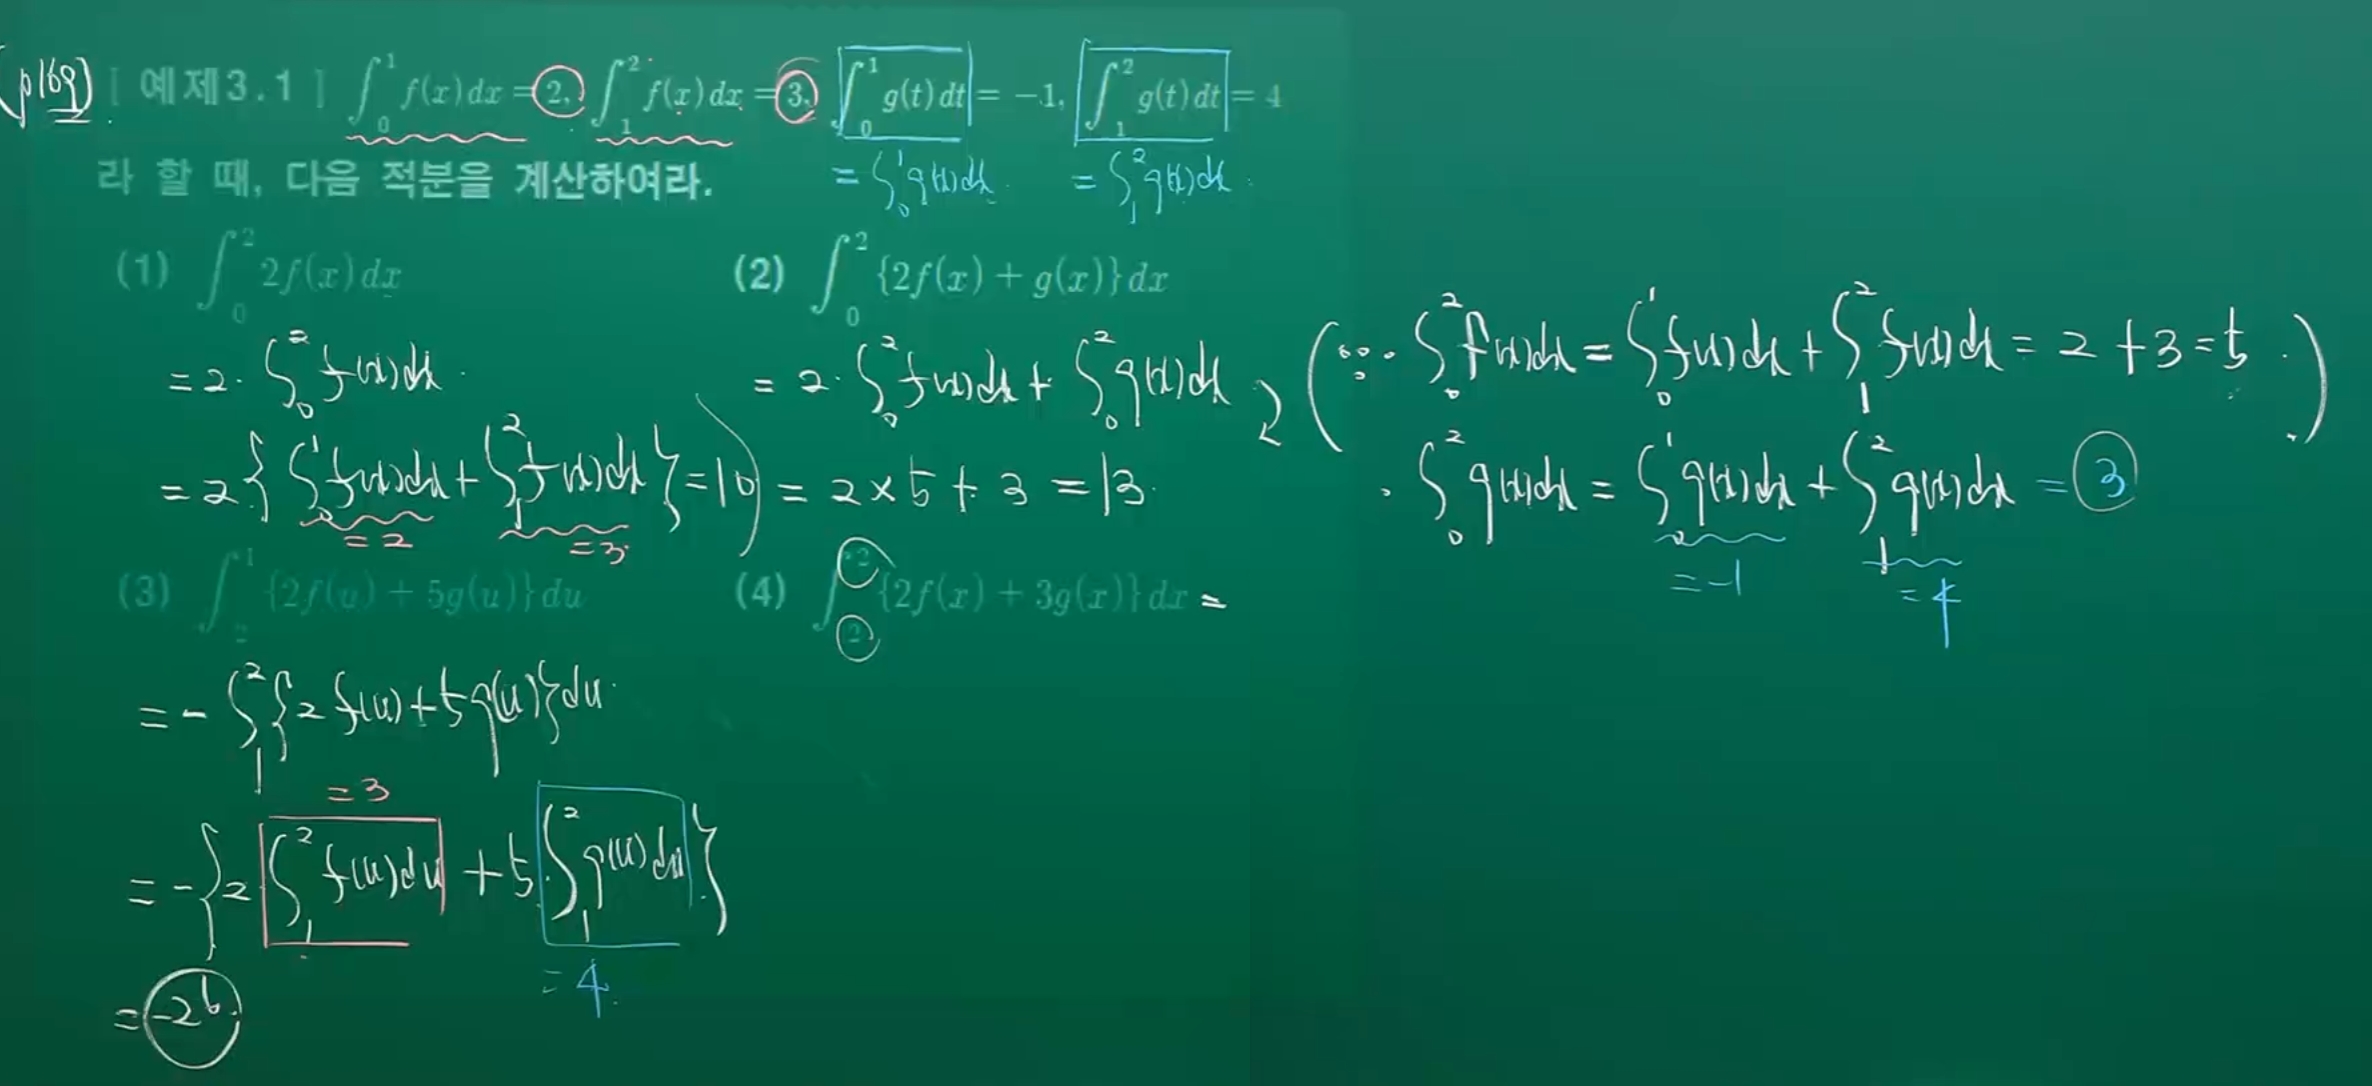 (p169) [ 예제3.1 ] ∫₀¹ f(x)dx = 2, ∫₁² f(x)dx = 3, ∫₀¹ g(t)dt = -1, ∫₁² g(t)dt = 4
라 할 때, 다음 적분을 계산하여라.
= ∫₀¹ g(x)dx. = ∫₁² g(x)dx.
(1) ∫₀² 2f(x)dx
= 2· ∫₀² f(x)dx.
= 2{ ∫₀¹ f(x)dx + ∫₁² f(x)dx } = 10
= 2 = 3
(2) ∫₀² {2f(x) + g(x)}dx
= 2· ∫₀² f(x)dx + ∫₀² g(x)dx
= 2 × 5 + 3 = 13.
( ∵ · ∫₀² f(x)dx = ∫₀¹ f(x)dx + ∫₁² f(x)dx = 2 + 3 = 5 . )
· ∫₀² g(x)dx = ∫₀¹ g(x)dx + ∫₁² g(x)dx = 3
= -1 = 4
(3) ∫₂¹ {2f(u) + 5g(u)}du
= - ∫₁² {2f(u) + 5g(u)}du.
= 3
= - { 2 ∫₁² f(u)du + 5· ∫₁² g(u)du }
= 4.
= -26.
(4) ∫₂² {2f(x) + 3g(x)}dx =